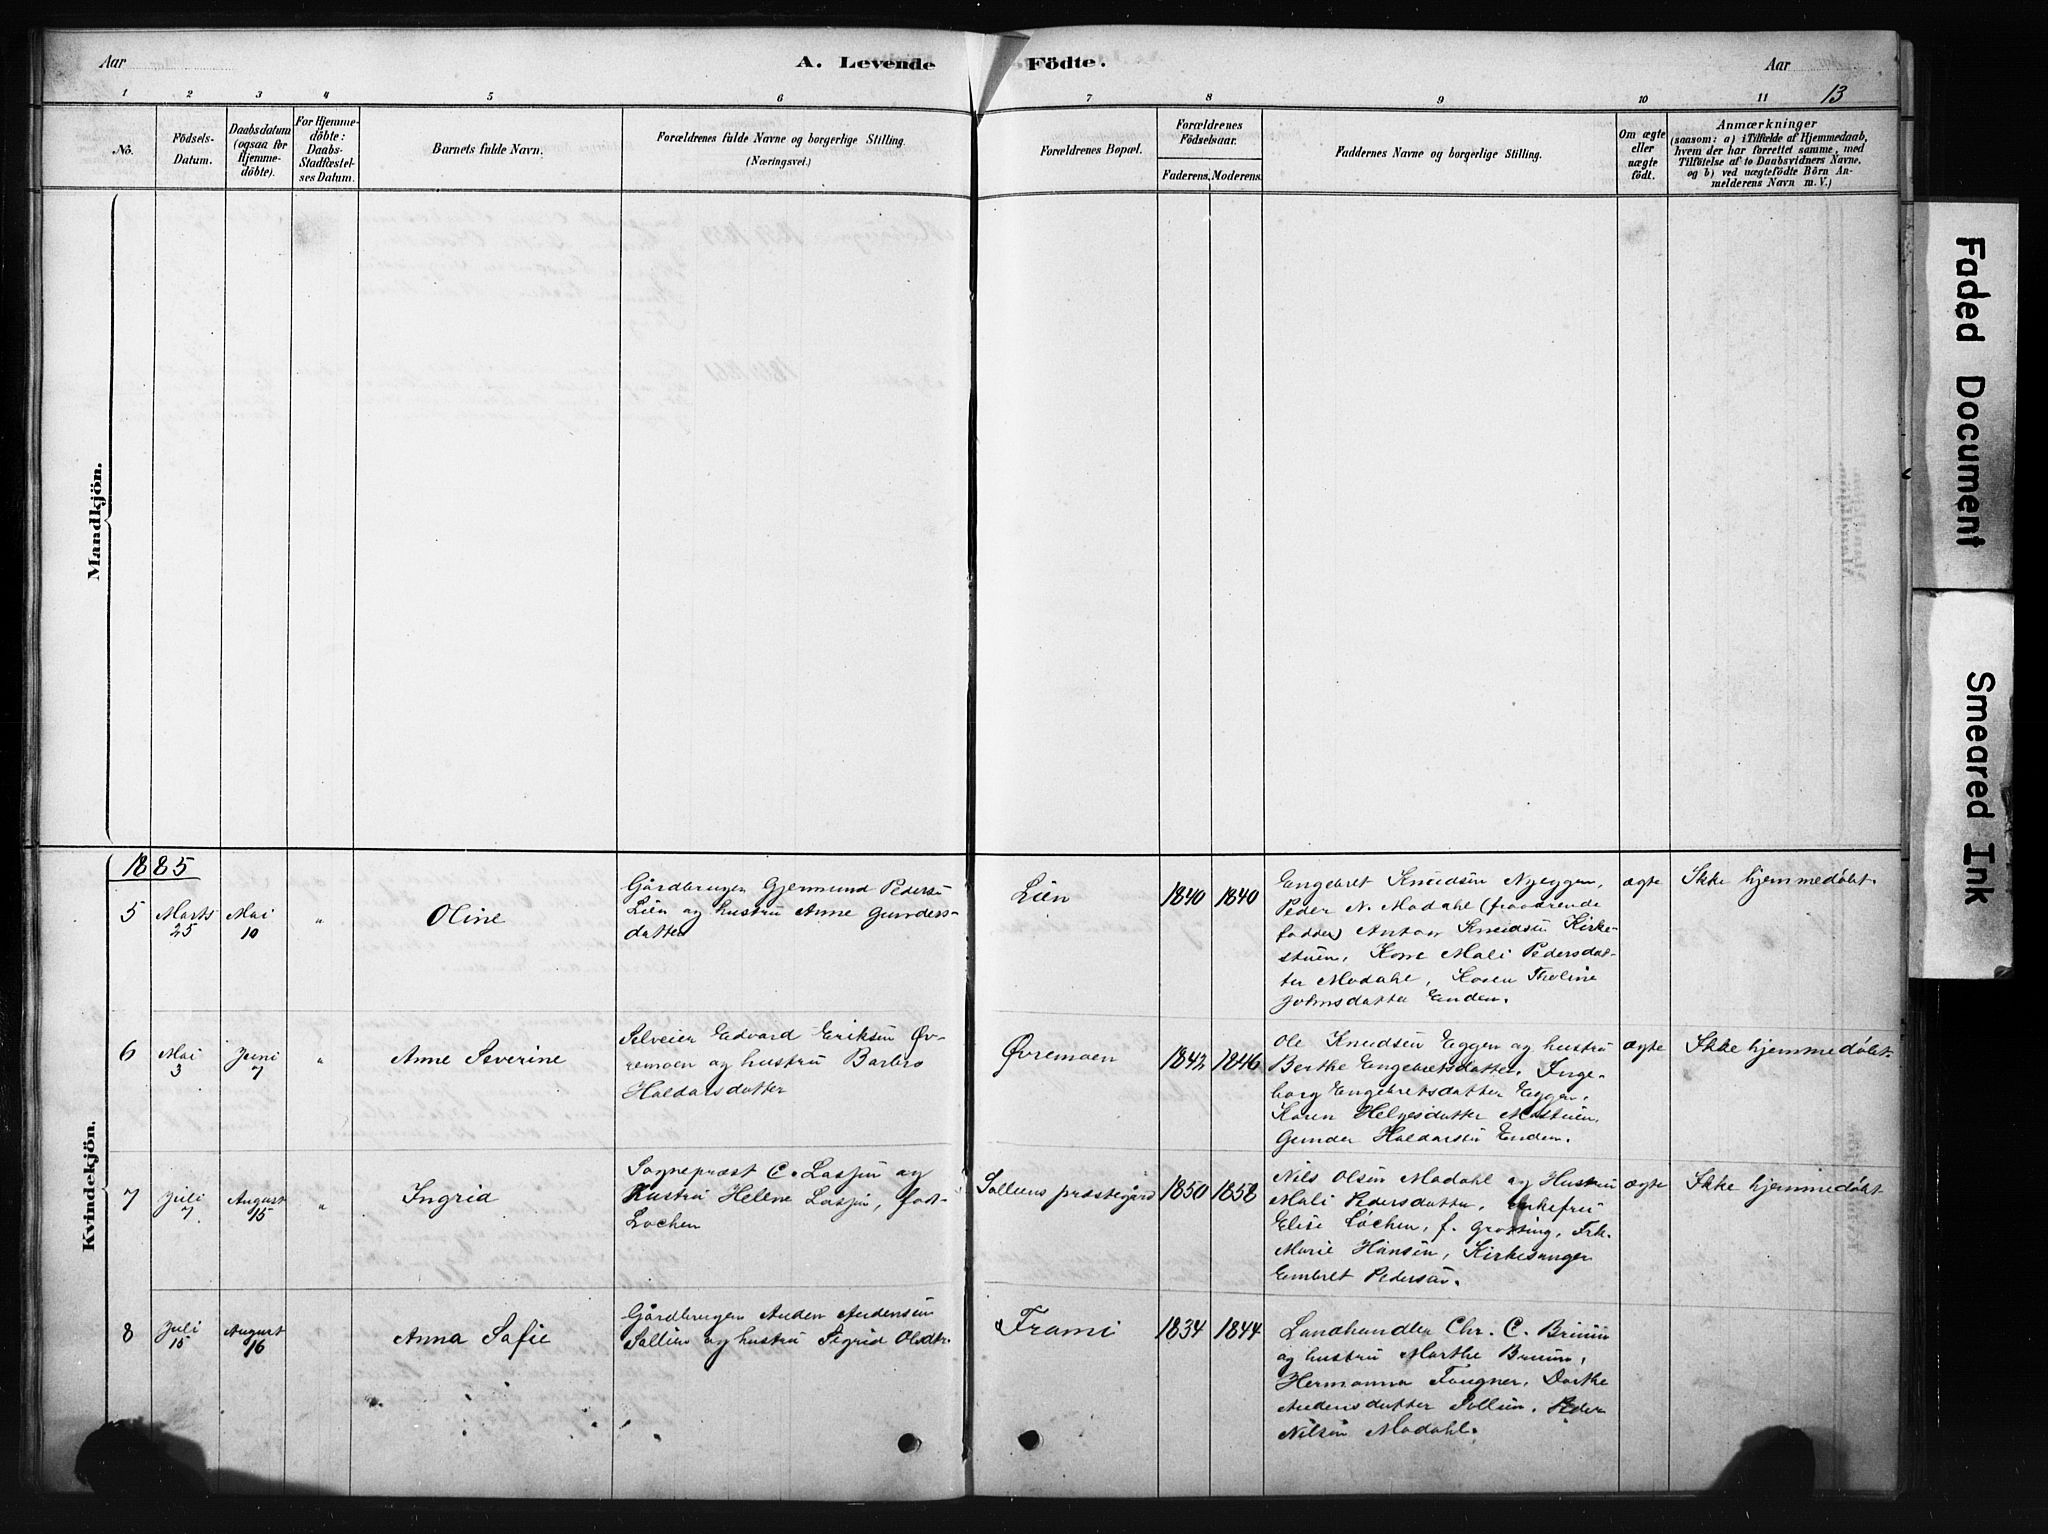 Aar
A. Levende Födte.
Aar
13
1 2 3 4 5 6 7 8 9 10 11
No.
Födsels-
Datum.
Daabsdatum
(ogsaa for
Hjemme-
döbte).
For Hjemme-
döbte:
Daabs-
Stadfæstel-
ses Datum.
Barnets fulde Navn.
Forældrenes fulde Navne og borgerlige Stilling.
(Næringsvei.)
Forældrenes Bopæl.
Forældrenes
Födselsaar.
Faderens, Moderens,
Faddernes Navne og borgerlige Stilling.
Om ægte
eller
uægte
födt.
Anmærkninger
(saasom: a) i Tilfælde af Hjemmedaab,
hvem der har forrettet samme, med
Tilföielse af to Daabsvidners Navne,
og b) ved uægtefödte Börn An-
melderens Navn m. V.)
Mandkjön.
Kvindekjön.
1885
5
Marts
25
Mai
10
"
Oline
Gårdbruger Gjermund Pedersen
Lien og hustru Anne Gunders-
datter
Lien
1840
1840
Engebret Knudsen Nyeggen,
Peder N. Modahl (fraværende
fadder) Anton Knudsen Kirke-
stuen, Kone Mali Pedersdat-
ter Modahl, Karen Tholine
Johnsdatter Enden.
ægte
Ikke hjemmedøbt.
6
Mai
3
Juni
7
"
Anne Severine
Selveier Edvard Eriksen Øv-
remoen og hustru Barbro
Haldorsdatter
Øvremoen
1842
1846
Ole Knudsen Eggen og hustru
Berthe Engebretsdatter. Inge-
borg Engebretsdatter Eggen,
Karen Helgesdatter Mostuen,
Gunder Haldorsen Enden.
ægte
Ikke hjemmedøbt
7
Juli
7
August
15
"
Ingrid
Sognepræst C. Lassen og
Hustru Helene Lassen, født
Lochen
Solliens præstegård
1850
1858
Nils Olsen Modahl og Hustru
Mali Pedersdatter, Enkefru
Elise Løchen, f. Frk.
Marie Hansen, Kirkesanger
Embret Pedersen.
ægte
Ikke hjemmedøbt
8
Juli
15
August
16
Anna Sofie
Gårdbruger Auden Audensen
Sollien og hustru Sigrid Olsdtr.
Frami
1834
1844
Landhandler Chr. C. Bruun
og hustru Marthe Bruun,
Hermanna Fougner, Dorthe
Audensdatter Sollien, Peder
Nilsen Modahl.
Faded Document
Smeared Ink